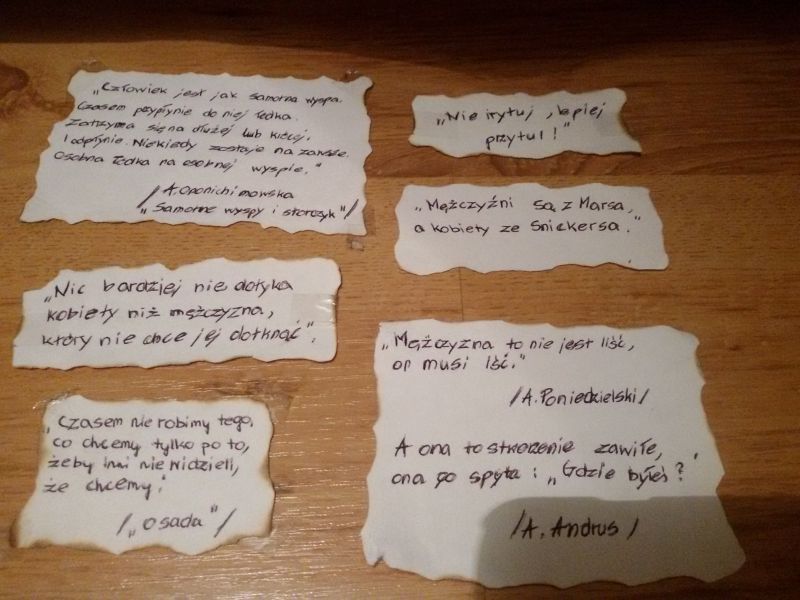 „Człowiek jest jak samotna wyspa.
Czasem przypłynie do niej łódka.
Zatrzyma się na dłużej lub krócej,
I odpłynie. Niekiedy zostaje na zawsze.
Osobna łódka na osobnej wyspie."
/A. Oponichimowska
„Samotne wyspy i storczyk"/
„Nie irytuj, lepiej
przytul!"
„Mężczyźni są z Marsa,
a kobiety ze Snickersa."
„Nic bardziej nie dotyka
kobiety niż mężczyzna,
który nie chce jej dotknąć".
„Mężczyzna to nie jest liść,
on musi iść."
/A. Poniedzielski/
A ona to stworzenie zawiłe,
ona go spyta: „Gdzie byłeś?
/A. Andrus/
„Czasem nie robimy tego,
co chcemy tylko po to,
żeby inni nie widzieli,
że chcemy."
/„Osada"/